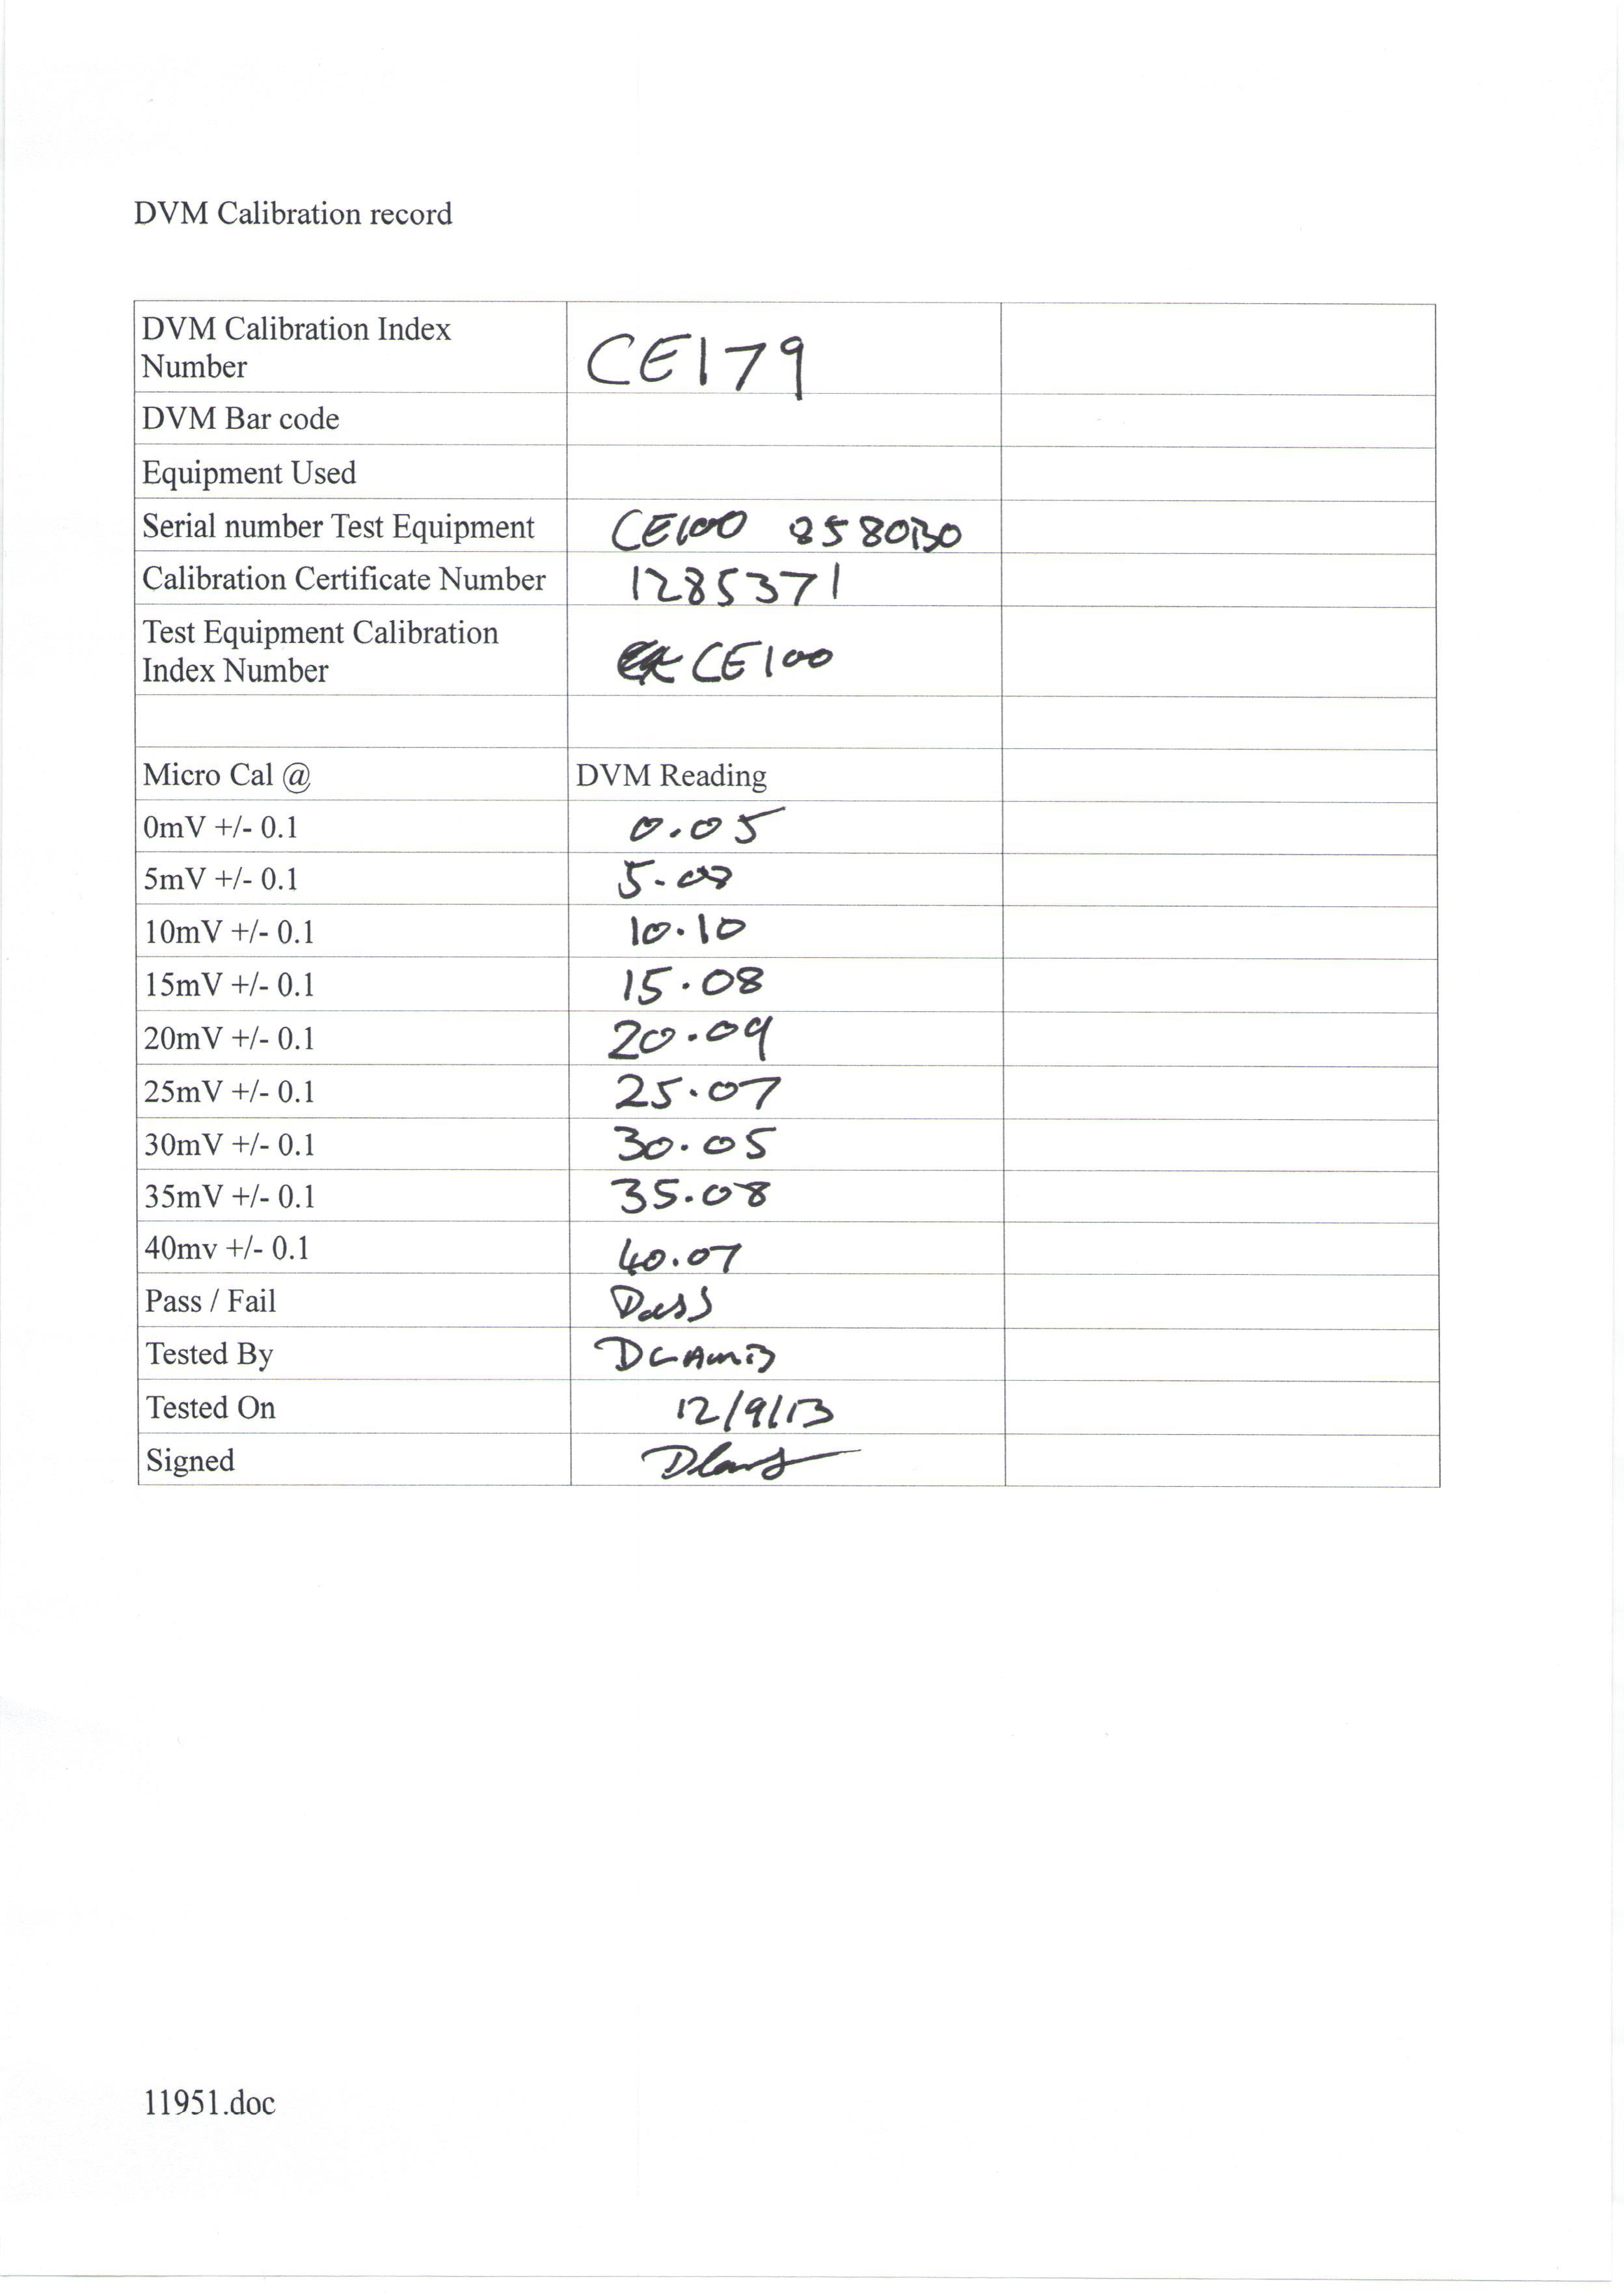 DVM Calibration record
DVM Calibration Index
Number
CE179
DVM Bar code
Equipment Used
Serial number Test Equipment CE100 8580130
Calibration Certificate Number 1285371
Test Equipment Calibration
Index Number
CE100
Micro Cal @ DVM Reading
0mV +/- 0.1 0.05
5mV +/- 0.1
10mV +/- 0.1 10.10
15mV +/- 0.1 15.08
20mV +/- 0.1 20.09
25mV +/- 0.1 25.07
30mV +/- 0.1 30.05
35mV +/- 0.1 35.08
40mv +/- 0.1 40.07
Pass / Fail Pass
Tested By
Tested On 12/9/13
Signed
11951.doc